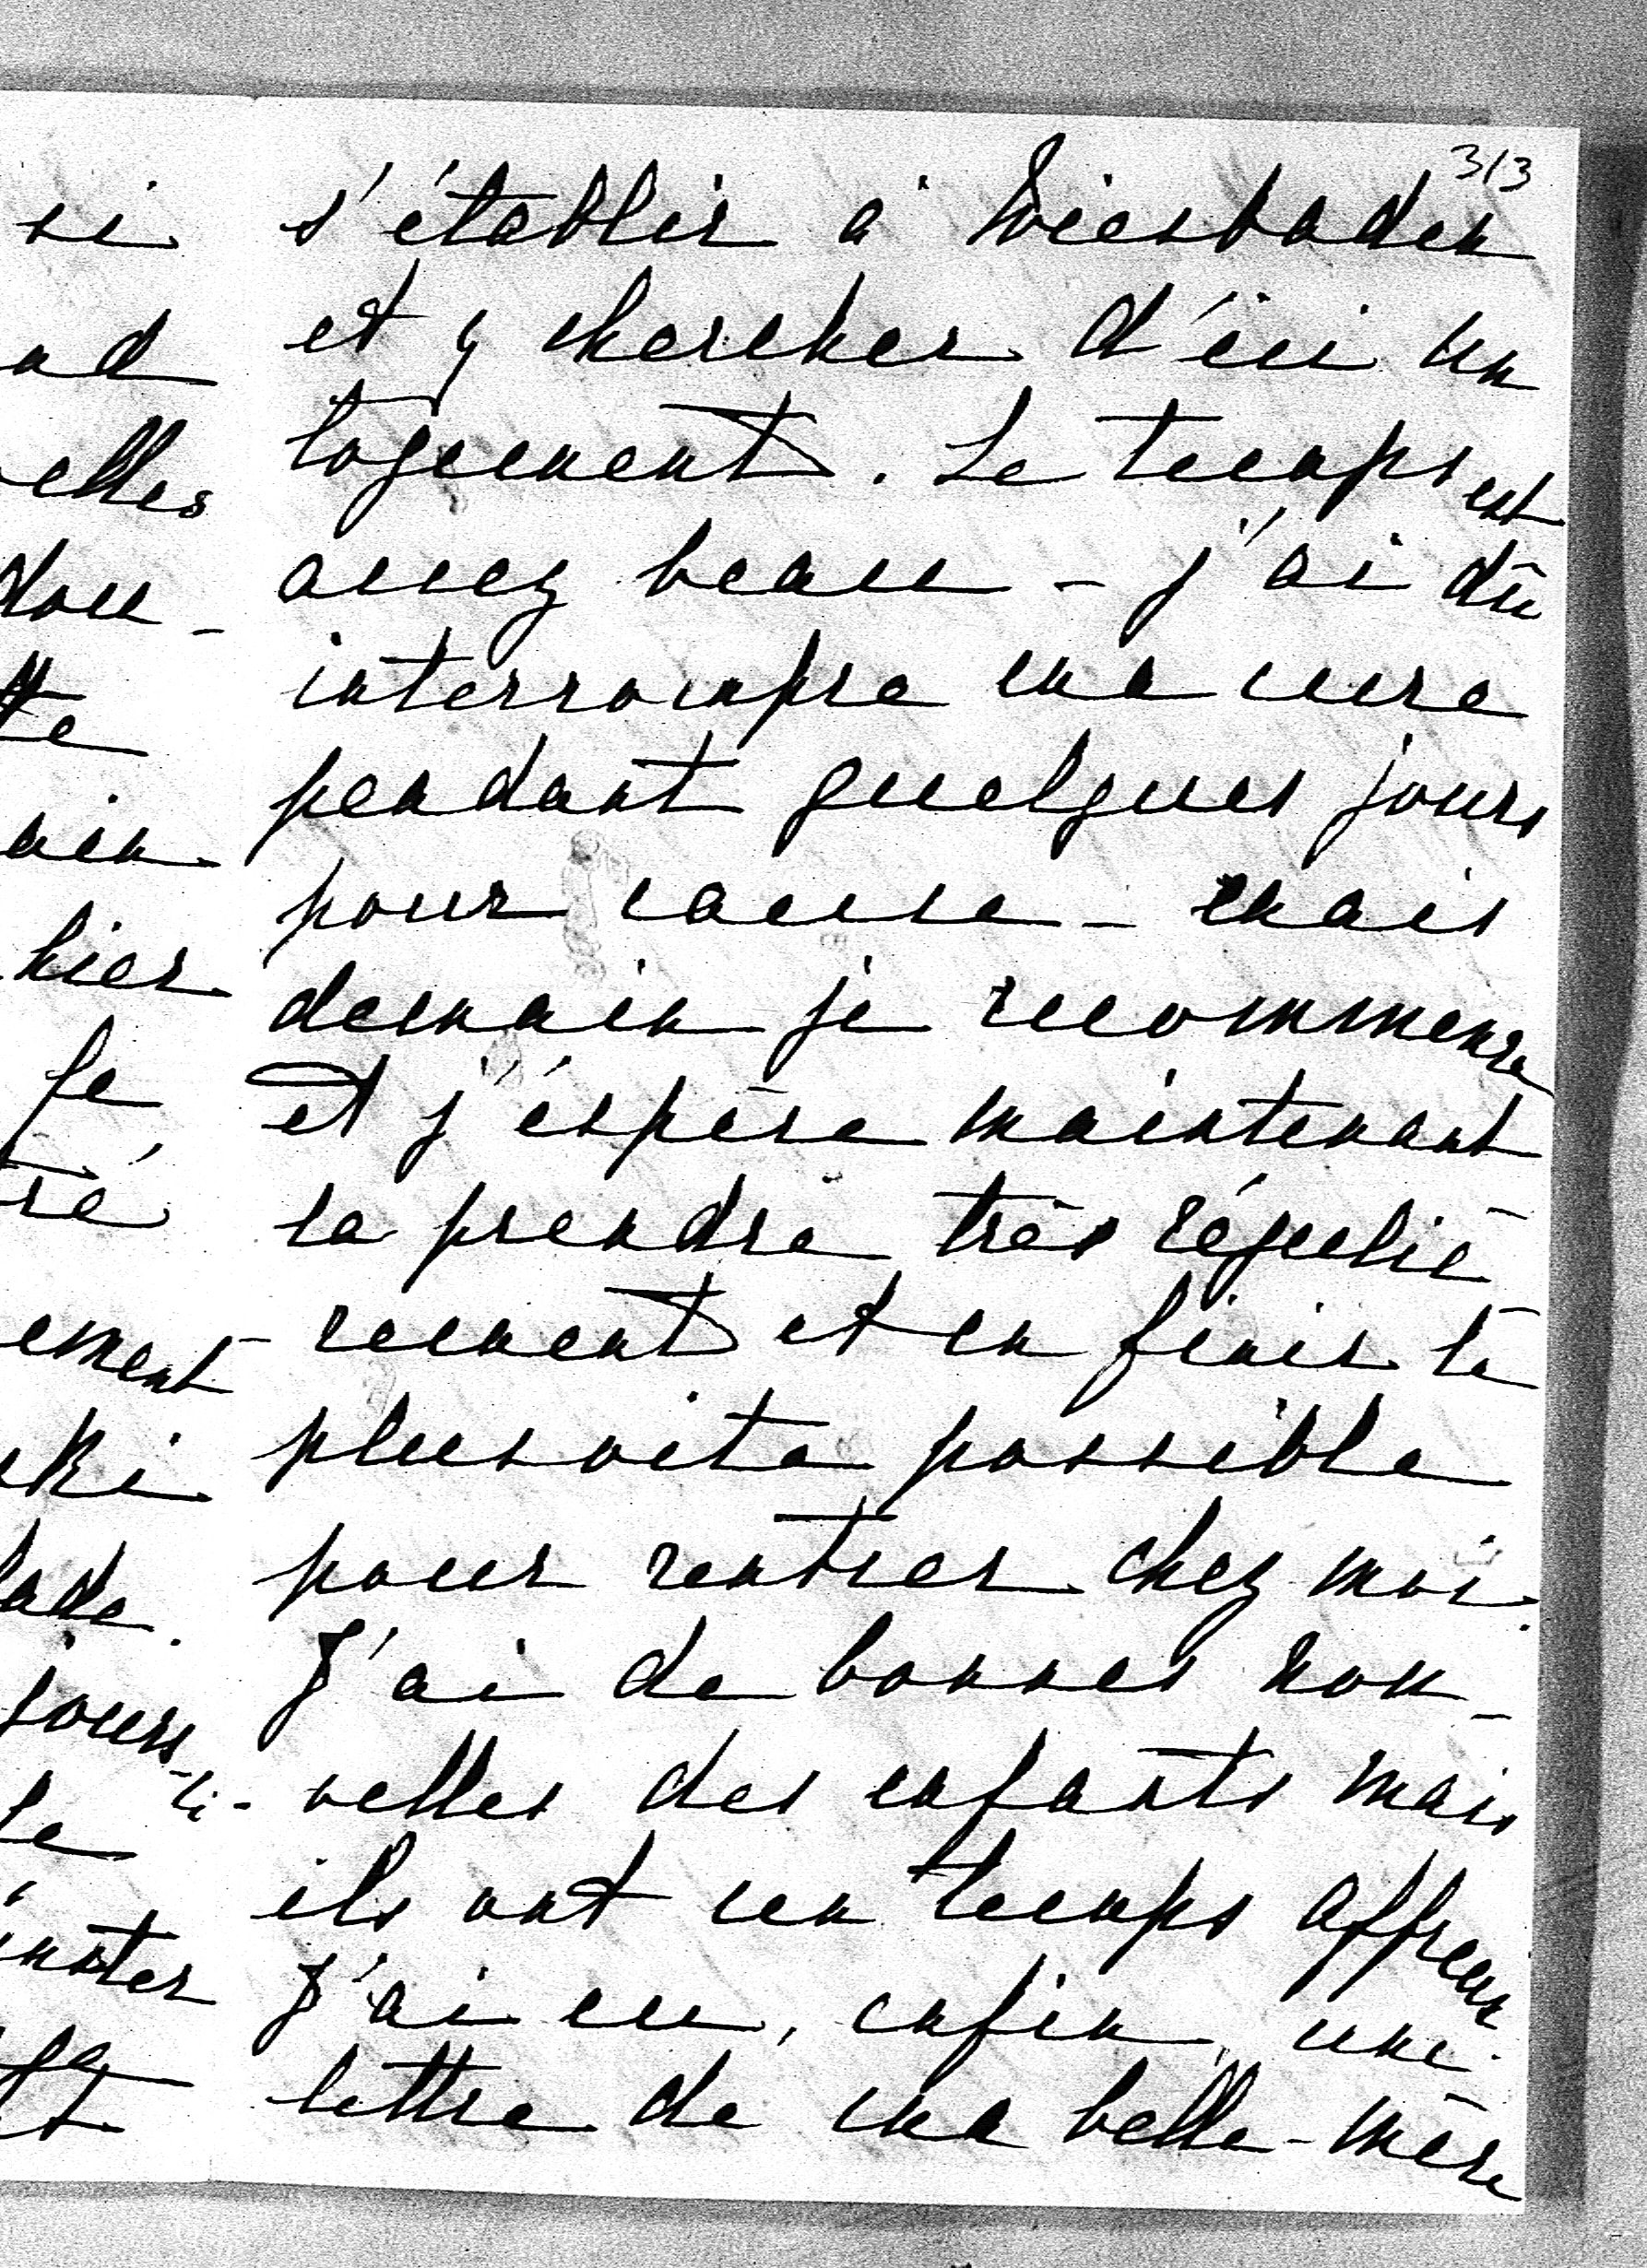 313
s'établir à Wiesbaden
et y chercher d'ici un
logement. Le temps est
assez beau - j'ai dû
interrompre ma cure
pendant quelques jours
pour cause - mais
demain je recommence
et j'éspère maintenant
la prendre très réguliè-
rement et en finir le
plus vite possible
pour rentrer chez moi.
J'ai de bonnes nou-
velles des enfants mais
ils ont un temps affreux
J'ai eu, enfin, une
lettre de ma belle-mère
si
ad
elles
dou-
te
ain
hier
Je
ré
ement
ski
lade.
jours-ci.
le
noter